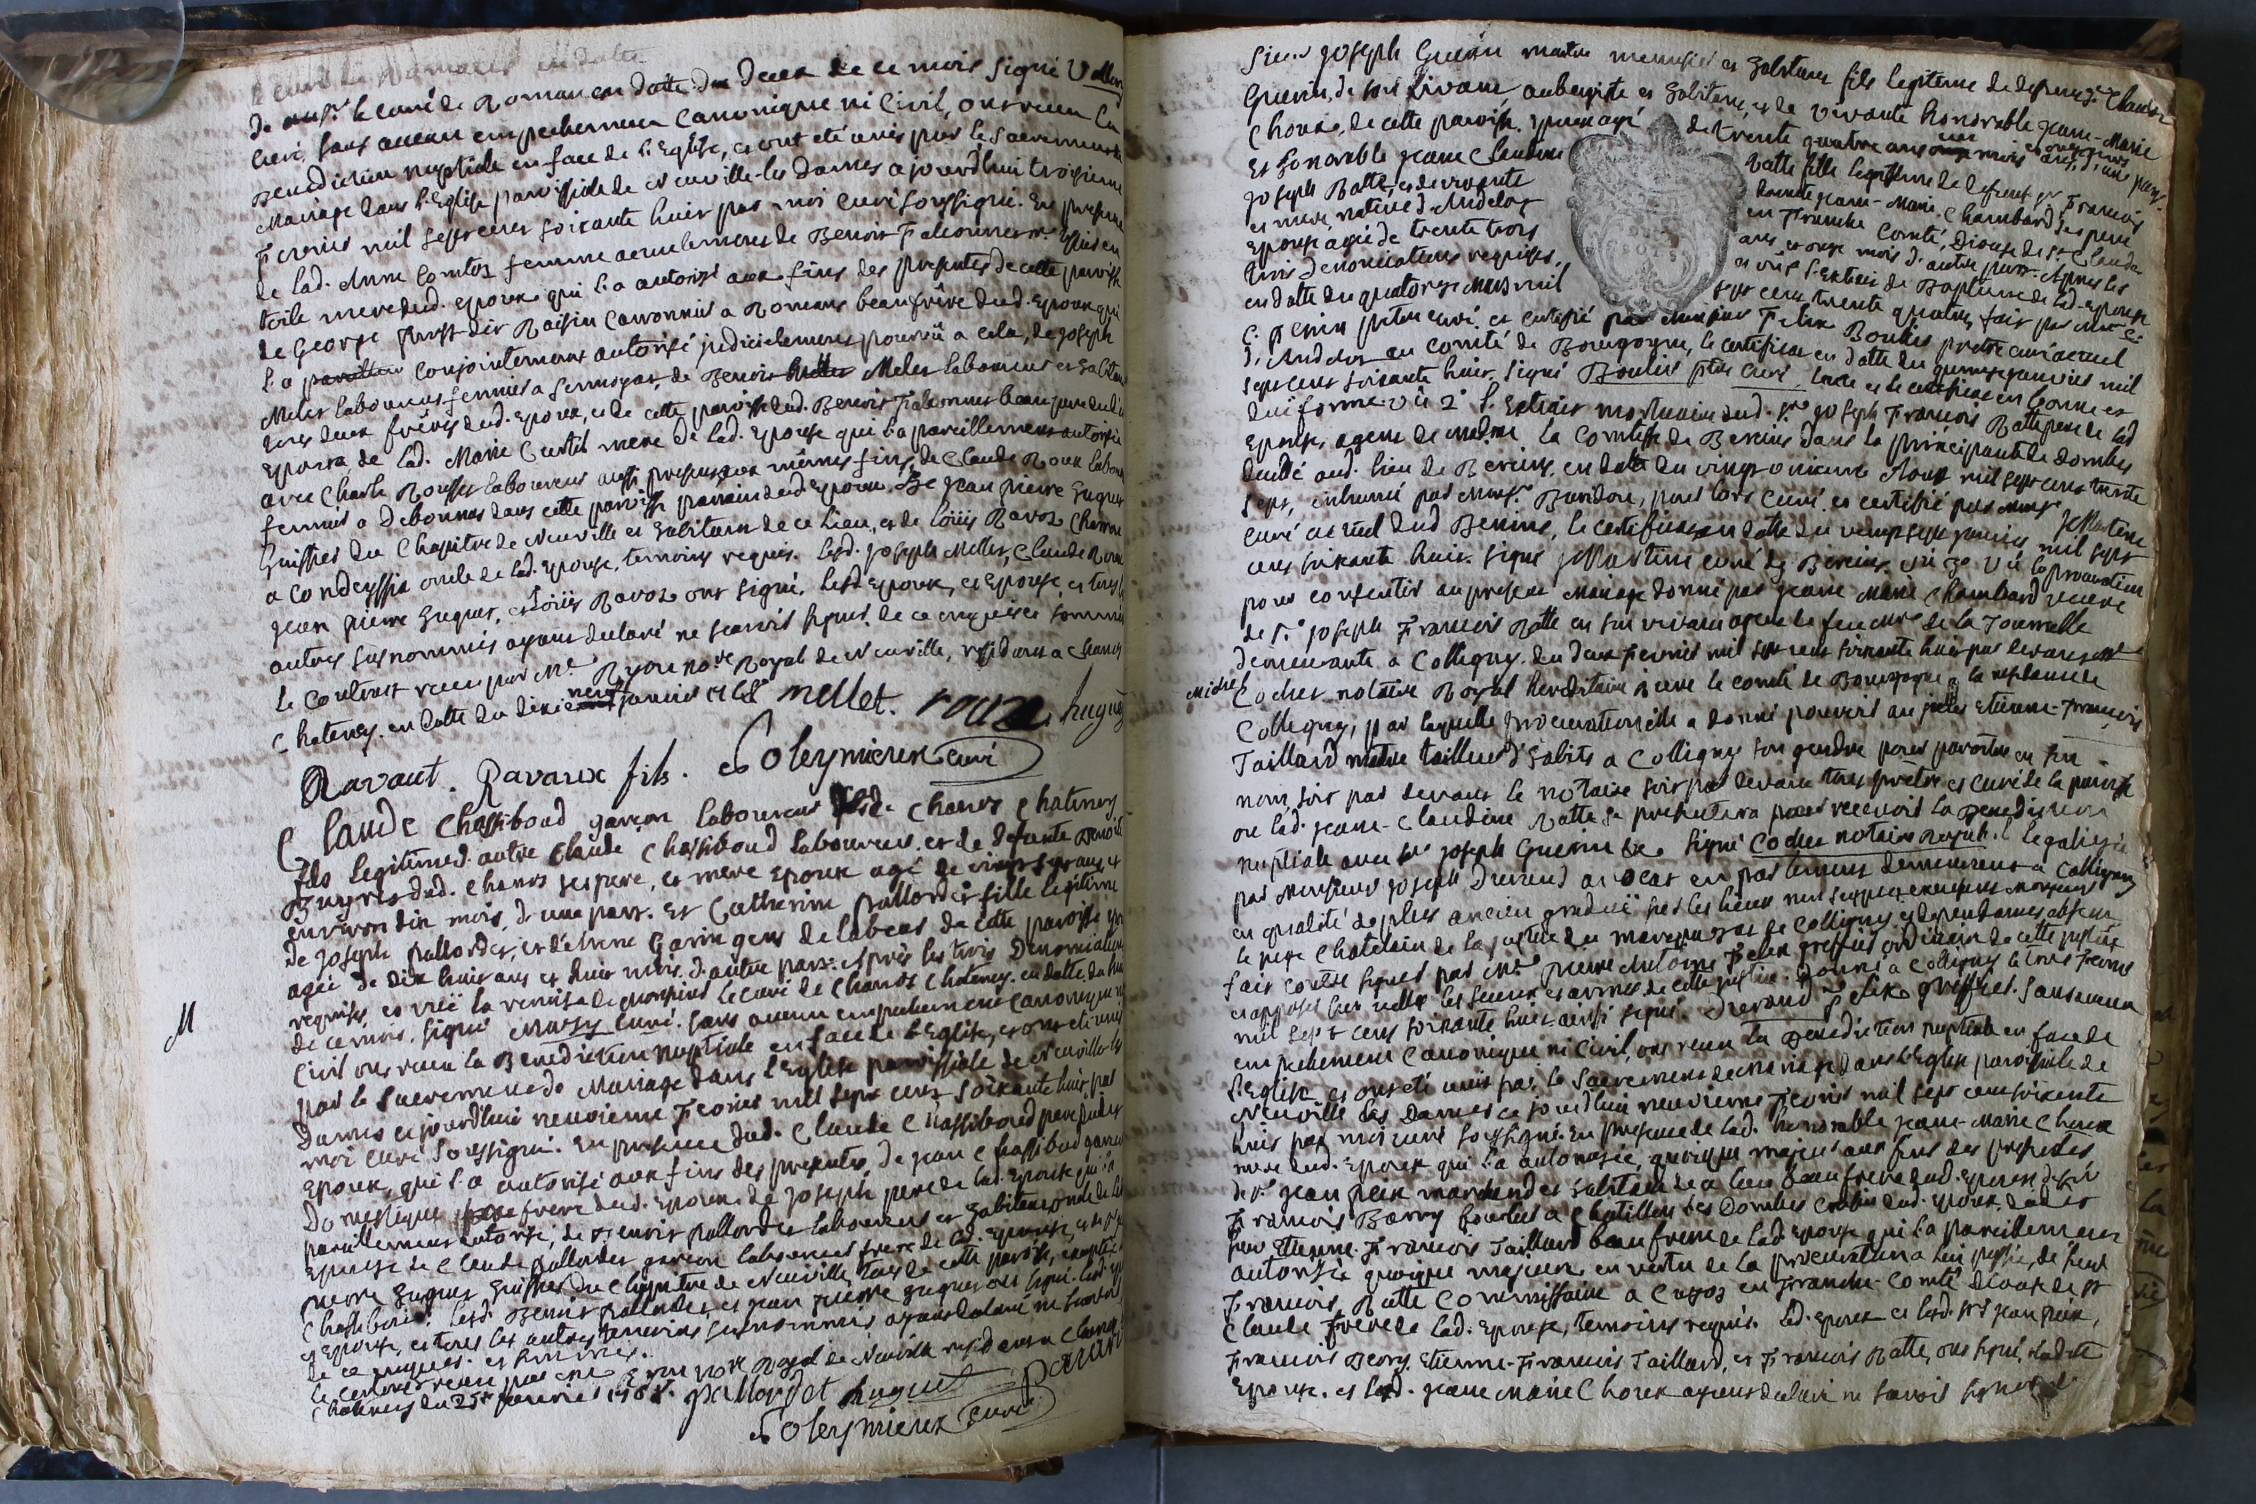 de mr le curé de Romans en datte du deux de ce mois signé
curé, sans aucun empechement canonique ni civil, ont recu la
Benediction nuptiale en face de l'Eglise, et ont été unis par le Sacrement de
Mariage dans l'Eglise paroissiale de Neuville-les Dames ajourdhui troisieme
Fevrier mil sept cens soixante huit par moi curé soussigné. En presence
de lad. Anne Comtet femme actuelement de Benoit Falconnet
mere dud. epoux qui l'a autorisé aux fins des presentes de cette paroisse
de George dit Raisin à Romans beaufrère dud. Epoux qui
l'a conjointement autorisé judicielement pourvü a cela, de joseph
Melet laboureur fermier a de Benoit Melet laboureur et habitant
tous deux frères dud. Epoux, et de cette paroisse dud. Benoit Falconnet beau pere dud.
Epoux de lad. Marie Curtil mere de lad. Epouse qui l'a pareillement autorisée
avec Charle Rousset laboureur aussi present aux mêmes fins, de Claude Roux labour
fermier a Debonnes dans cette paroisse parrain dud. Epoux. De jean pierre huguet
huissier du Chapitre de Neuville et habitant de ce lieu, et de loüis Ravox
a Condeyssia oncle de lad. Epouse, temoins requis. Lesd. joseph Mellet, Claude Roux
jean pierre huguet, et loüis Ravox ont signé. Lesd. Epoux, et Epouse, et tous les
autres susnommés ayant declaré ne scavoir signer de ce enquis et sommés
le contrat recu par Me Ryon nore Royal de Neuville, residant a Chanoz
Chatenay. en datte du dixneuf janvier 1768 mellet. roux huguet
Ravaut. Ravaux fils. Soleymieux curé
Claude Chassiboud garçon laboureur Chanoz Chatenay
fils legitime d'autre Claude Chassiboud laboureur, et de defunte Benoite
dud. Chanoz ses pere, et mere Epoux agé de vingt sept ans et
environ dix mois, d'une part. Et Catherine pallordet fille legitime
de joseph pallordet, et d'Etienne Garin gens de labeur de cette paroisse
agée de dix huit ans et huit mois. d'autre part. Après les trois Denonciations
requises, et vuë la remise de Monsieur le Curé de Chanoz Chatenay. en datte du huit
de ce mois. signé curé. Sans aucun empechement canonique ni
civil ont recu la Benediction nuptiale en face de l'Eglise, et ont été unis
par le Sacrement de Mariage dans l'Eglise paroissiale de Neuville-les
Dames ajourdhui neuvieme Fevrier mil sept cens soixante huit par
moi curé soussigné. En presence dud. Claude Chassiboud pere dud.
Epoux, qui l'a autorisé aux fins des presentes, de jean Chassiboud garcon
Domestique frere dud. Epoux. de joseph pere de lad. Epouse qui l'a
pareillement autorisé, de Benoit pallordet laboureur et habitant oncle de lad.
Epouse de Claude pallordet garcon laboureur frere de lad. Epouse, et de jean
pierre huguet huissier du Chapitre de Neuville, tous de cette paroisse, excepté
Chassiboud. Lesd. Benoit pallordet, et jean pierre huguet ont signé. Lesd. epoux
et Epouse, et tous les autres temoins susnommés ayant declaré ne scavoir
de ce enquis. et sommés.
Le contrat recu par me Ryon nore Royal de Neuville residant a Chanoz
Chatenay du 25e janvier 1768. pallordet huguet
Soleymieux curé
M
Sieur joseph Guerin maitre menuisier et habitant fils legitime de defunt sr. Claude
Guerin, de son vivant aubergiste et habitant, et de vivante honorable jeanne-Marie
Choux, de cette paroisse. Epoux agé de trente quatre ans
Et honorable jeanne Claudine Ratte fille legitime de defunt sr. Francois
joseph Ratte, et de vivante jeanne-Marie Chambard ses pere
et mere, native d'Andelot en Franche Comté, Diocese de St. Claude
Epouse agée de trente trois ans et onze mois d'autre part. Après les
trois denonciations requises, et vû 1° l'extrait de Baptême de lad. Epouse
en datte du quatorze Mars mil sept cens trente quatre, fait par Mr
C. perrin pretre curé. et certifié par Monsieur Felix Boulis pretre curé actuel
d'Andelot au comté de Bourgogne, le certificat en datte du quinze janvier mil
sept cens soixante huit, signé Boulis ptre curé, l'acte et le certificat en bonne et
duë forme. vû 2° l'Extrait mortuaire dud. sr. joseph Francois Ratte pere de lad
Epouse, agent de madme la Comtesse de Bereins dans la principauté de dombes
decedé aud. lieu de Bereins, en datte du vingt onzieme Aoust mil sept cens trente
sept, inhumé par Monsr. Buridon, pour lors curé. et certifié par Monsr jMartine
curé actuel dud Bereins, le certificat en datte du vingt sept janvier mil sept
cens soixante huit. signé jMartine curé de Bereins. vû 3° Vû la procuration
pour consentir au present Mariage donné par jeanne Marie Chambard veuve
de sr. joseph Francois Ratte en son vivant agent de feu mr. de la Tournelle
demeurante a Colligny. du deux Fevrier mil sept cens soixante huit par devant Me
Michel
Codet notaire Royal hereditaire au comté de Bourgogne a la residence de
Colligny, par laquelle procuration elle a donné pouvoir au sieur Etienne-Francois
Taillard maitre tailleur d'habits a Colligny son gendre pour paroitre en son
nom, soit par devant le notaire soit par devant tous pretres et curé de la paroisse
ou lad. jeanne-Claudine Ratte se presentera pour recevoir la Benediction
nuptiale avec sr joseph Guerin &c. signé Codet notaire Royal. legalisée
par Monsieur joseph avocat en parlement demeurant a Colligny
en qualité de plus ancien gradué sur les lieux
le juge Chatelain de la justice du marquisat de Colligny et dependances absent
fait contre signer par Mre. pierre Antoine Felix greffier ordinaire de cette justice
et apposer sur icelle les sceaux et armes de cette justice. Donné a Colligny le trois Fevrier
mil sept cens soixante huit aussi signé. Felix greffier. Sans aucun
empechement Canonique ni Civil, ont recu la Benediction nuptiale en face de
l'Eglise, et ont été unis par le Sacrement de mariage dans l'Eglise paroissiale de
Neuville les Dames ce jourdhui neuvieme Fevrier mil sept cens soixante
huit par moi curé soussigné. En presence de lad. honorable jeane-Marie Choux
mere dud. Epoux qui l'a autorisée, quoique majeur aux fins des presentes
de sr. jean peix marchand et habitant de ce lieu beau frere dud. Epoux de sr.
Francois Berry a Chatillon les Dombes cousin dud. epoux. dud. sr
Etienne-Francois Taillard beau frere de lad. Epouse qui l'a pareillement
autorisée quoique majeure en vertu de la procuration a lui passée, de sieur
Francois Ratte Commissaire a en Franche-Comté Diocese de St
Claude frere de lad. Epouse, temoins requis. Led. Epoux et lesd. srs jean peix,
Francois Berry, Etienne-Francois Taillard, et Francois Ratte, ont signé. Ladite
Epouse. et lad. jeane Marie Choux ayant declaré ne savoir signer